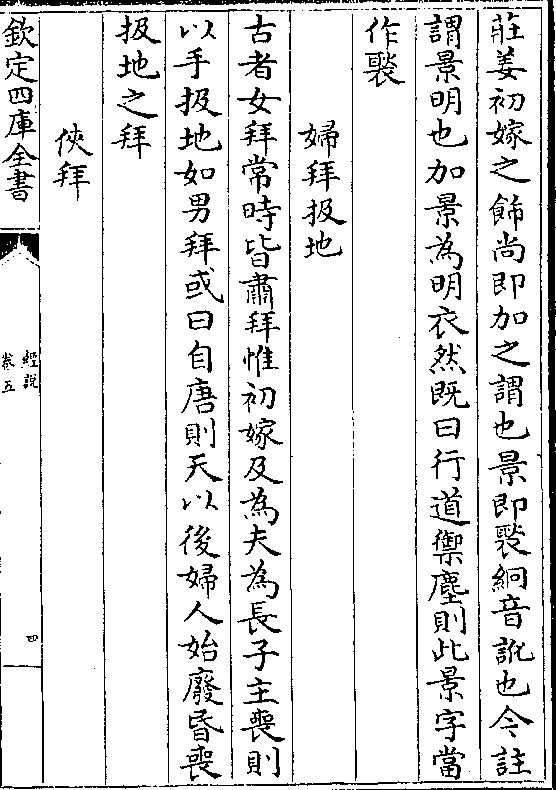 莊姜初嫁之飾尚即加之謂也景即褧絅音訛也今註
謂景明也加景為明衣然既曰行道禦塵則此景字當
作褧
婦拜扱地
古者女拜常時皆肅拜惟初嫁及為夫為長子主喪則
以手扱地如男拜或曰自唐則天以後婦人始廢昏喪
扱地之拜
俠拜
欽定四庫全書
經說
卷五
四